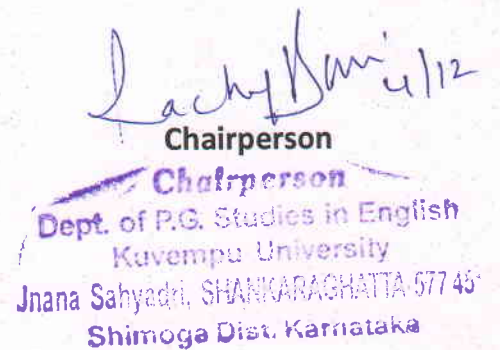 4/12
Chairperson
Chairperson
Dept. of P.G. Studies in English
Kuvempu University
Jnana Sahyadri, SHANKARAGHATTA-577 45
Shimoga Dist. Karnataka